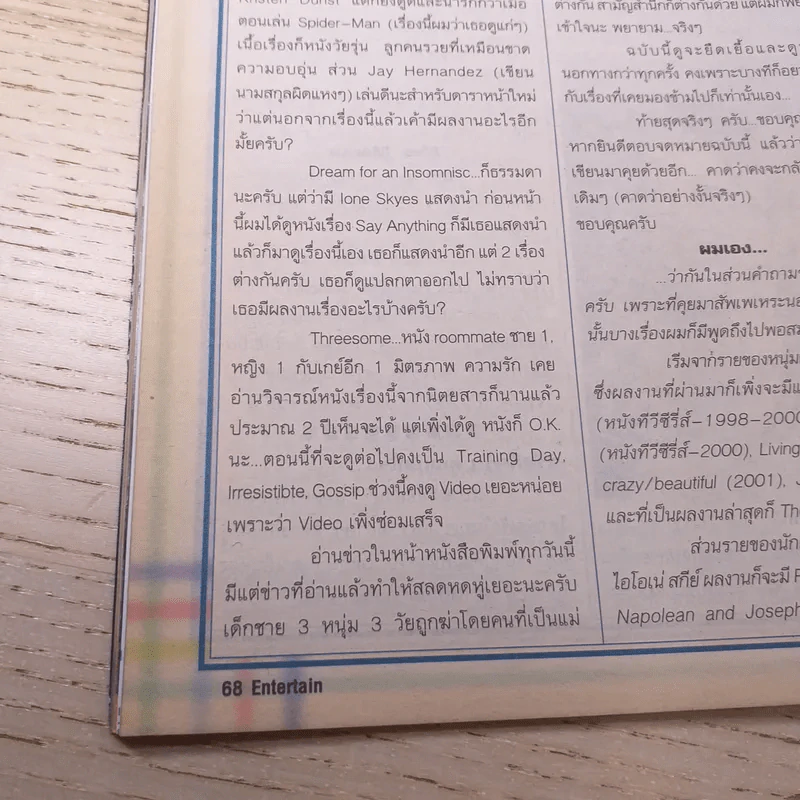 Kristen Dunst แต่ก็ยังดูดีและน่ารักกว่าเมื่อ
ตอนเล่น Spider-Man (เรื่องนี้ผมว่าเธอดูแก่ๆ)
เนื้อเรื่องก็หนังวัยรุ่น ลูกคนรวยที่เหมือนขาด
ความอบอุ่น ส่วน Jay Hernandez (เขียน
นามสกุลผิดแหงๆ) เล่นดีนะสำหรับดาราหน้าใหม่
ว่าแต่นอกจากเรื่องนี้แล้วเค้ามีผลงานอะไรอีก
มั้ยครับ?
Dream for an Insomnisc...ก็ธรรมดา
นะครับ แต่ว่ามี Ione Skyes แสดงนำ ก่อนหน้า
นี้ผมได้ดูหนังเรื่อง Say Anything ก็มีเธอแสดงนำ
แล้วก็มาดูเรื่องนี้เอง เธอก็แสดงนำอีก แต่ 2 เรื่อง
ต่างกันครับ เธอก็ดูแปลกตาออกไป ไม่ทราบว่า
เธอมีผลงานเรื่องอะไรบ้างครับ?
Threesome...หนัง roommate ชาย 1,
หญิง 1 กับเกย์อีก 1 มิตรภาพ ความรัก เคย
อ่านวิจารณ์หนังเรื่องนี้จากนิตยสารก็นานแล้ว
ประมาณ 2 ปีเห็นจะได้ แต่เพิ่งได้ดู หนังก็ O.K.
นะ...ตอนนี้ที่จะดูต่อไปคงเป็น Training Day,
Irresistibte, Gossip ช่วงนี้คงดู Video เยอะหน่อย
เพราะว่า Video เพิ่งซ่อมเสร็จ
อ่านข่าวในหน้าหนังสือพิมพ์ทุกวันนี้
มีแต่ข่าวที่อ่านแล้วทำให้สลดหดหู่เยอะนะครับ
เด็กชาย 3 หนุ่ม 3 วัยถูกฆ่าโดยคนที่เป็นแม่
ต่างกัน สามัญสำนึกก็ต่างกันด้วย แต่ผมก็
เข้าใจนะ พยายาม...จริงๆ
ฉบับนี้ดูจะยืดเยื้อและดู
นอกทางกว่าทุกครั้ง คงเพราะบางทีก็
กับเรื่องที่เคยมองข้ามไปก็เท่านั้นเอง...
ท้ายสุดจริงๆ ครับ...ขอบคุณ
หากยินดีตอบจดหมายฉบับนี้ แล้วว่า
เขียนมาคุยด้วยอีก... คาดว่าคงจะ
เดิมๆ (คาดว่าอย่างงั้นจริงๆ)
ขอบคุณครับ
ผมเอง...
...ว่ากันในส่วนคำถาม
ครับ เพราะที่คุยมาสัพเพเหระ
นั้นบางเรื่องผมก็มีพูดถึงไป
เริ่มจากรายของหนุ่ม
ซึ่งผลงานที่ผ่านมาก็เพิ่งจะมี
(หนังทีวีซีรี่ส์-1998-200
(หนังทีวีซีรี่ส์-2000), Living
crazy/beautiful (2001),
และที่เป็นผลงานล่าสุดก็ Th
ส่วนรายของนัก
ไอโอเน่ สกีย์ ผลงานก็จะมี
Napolean and Joseph
68 Entertain